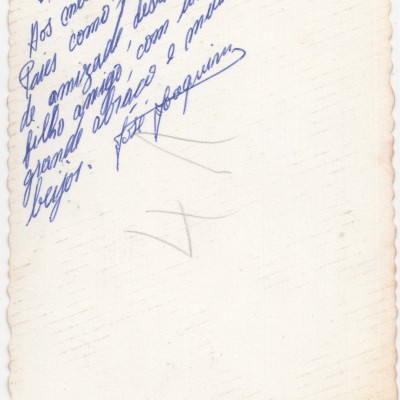 Aos me
Pais como
de amizade, des
filho amigo, com u
grande abraço e ma
beijos. José Joaquim